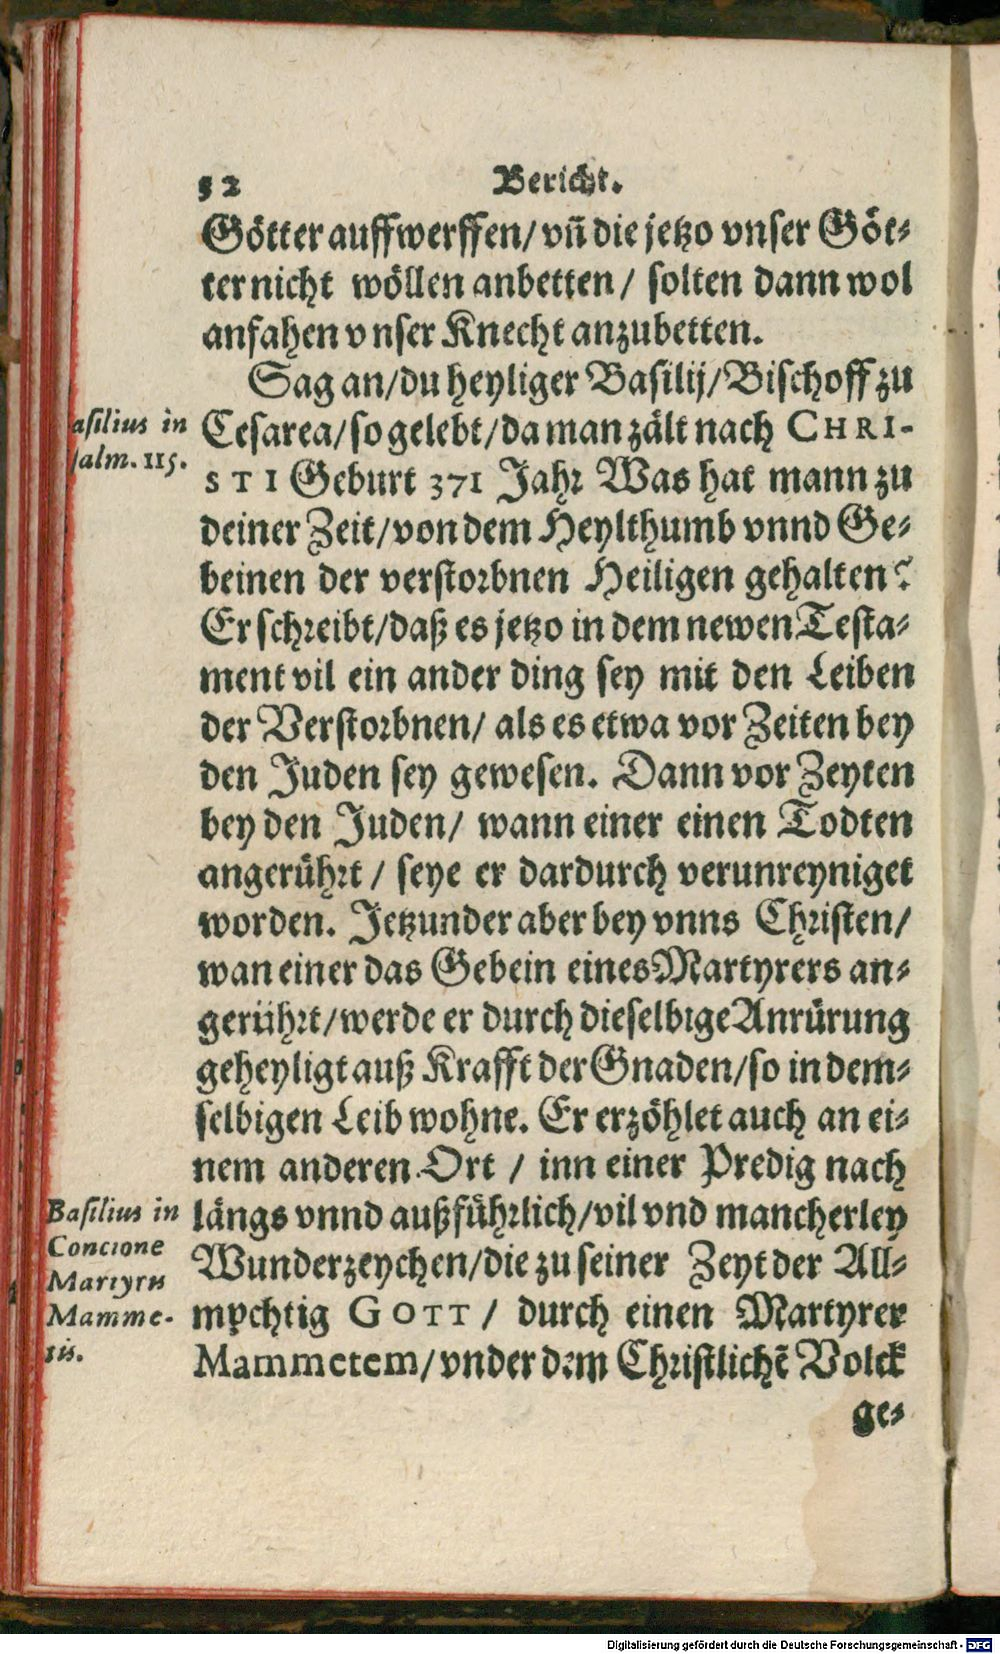 52 Bericht.
Götter auffwerffen/ vñ die jetzo vnser Göt-
ter nicht wöllen anbetten/ solten dann wol
anfahen vnser Knecht anzubetten.
Sag an/ du heyliger Basilij/ Bischoff zu
asilius in
salm. 115.
Cesarea/ so gelebt/ da man zält nach CHRI-
STI Geburt 371 Jahr Was hat mann zu
deiner Zeit/ von dem Heylthumb vnnd Ge-
beinen der verstorbnen Heiligen gehalten?
Er schreibt/ daß es jetzo in dem newen Testa-
ment vil ein ander ding sey mit den Leiben
der Verstorbnen/ als es etwa vor Zeiten bey
den Juden sey gewesen. Dann vor Zeyten
bey den Juden/ wann einer einen Todten
angerührt/ seye er dardurch verunreyniget
worden. Jetzunder aber bey vnns Christen/
wan einer das Gebein eines Martyrers an-
gerührt/ werde er durch dieselbige Anrürung
geheyligt auß Krafft der Gnaden/ so in dem-
selbigen Leib wohne. Er erzöhlet auch an ei-
nem anderen Ort/ inn einer Predig nach
Basilius in
Concione
Martyris
Mamme-
tis.
längs vnnd außführlich/ vil vnd mancherley
Wunderzeychen/ die zu seiner Zeyt der All-
mechtig GOTT/ durch einen Martyrer
Mammetem/ vnder dem Christlichē Volck
ge-
Digitalisierung gefördert durch die Deutsche Forschungsgemeinschaft - DFG